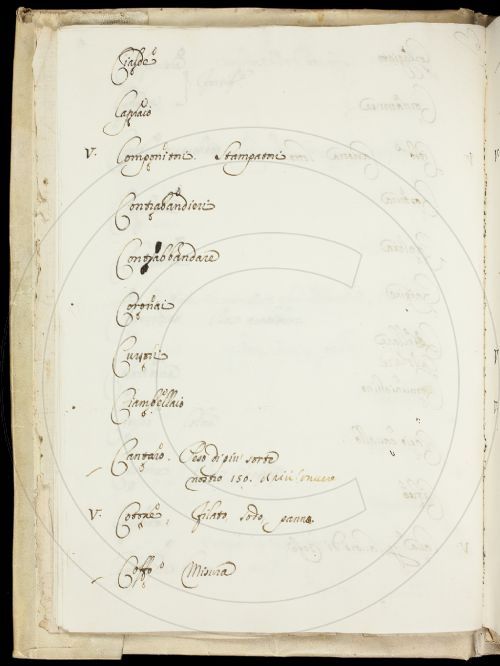 Cialde
Cappaio
V. Componitori. Stampatori
Contrabandieri
Contrabbandare
Coronai
Ciambellaio
Cantaro. Peso di più sorte
nostro 150.
V. Cotone, filato, sodo, panno
Coffo Misura